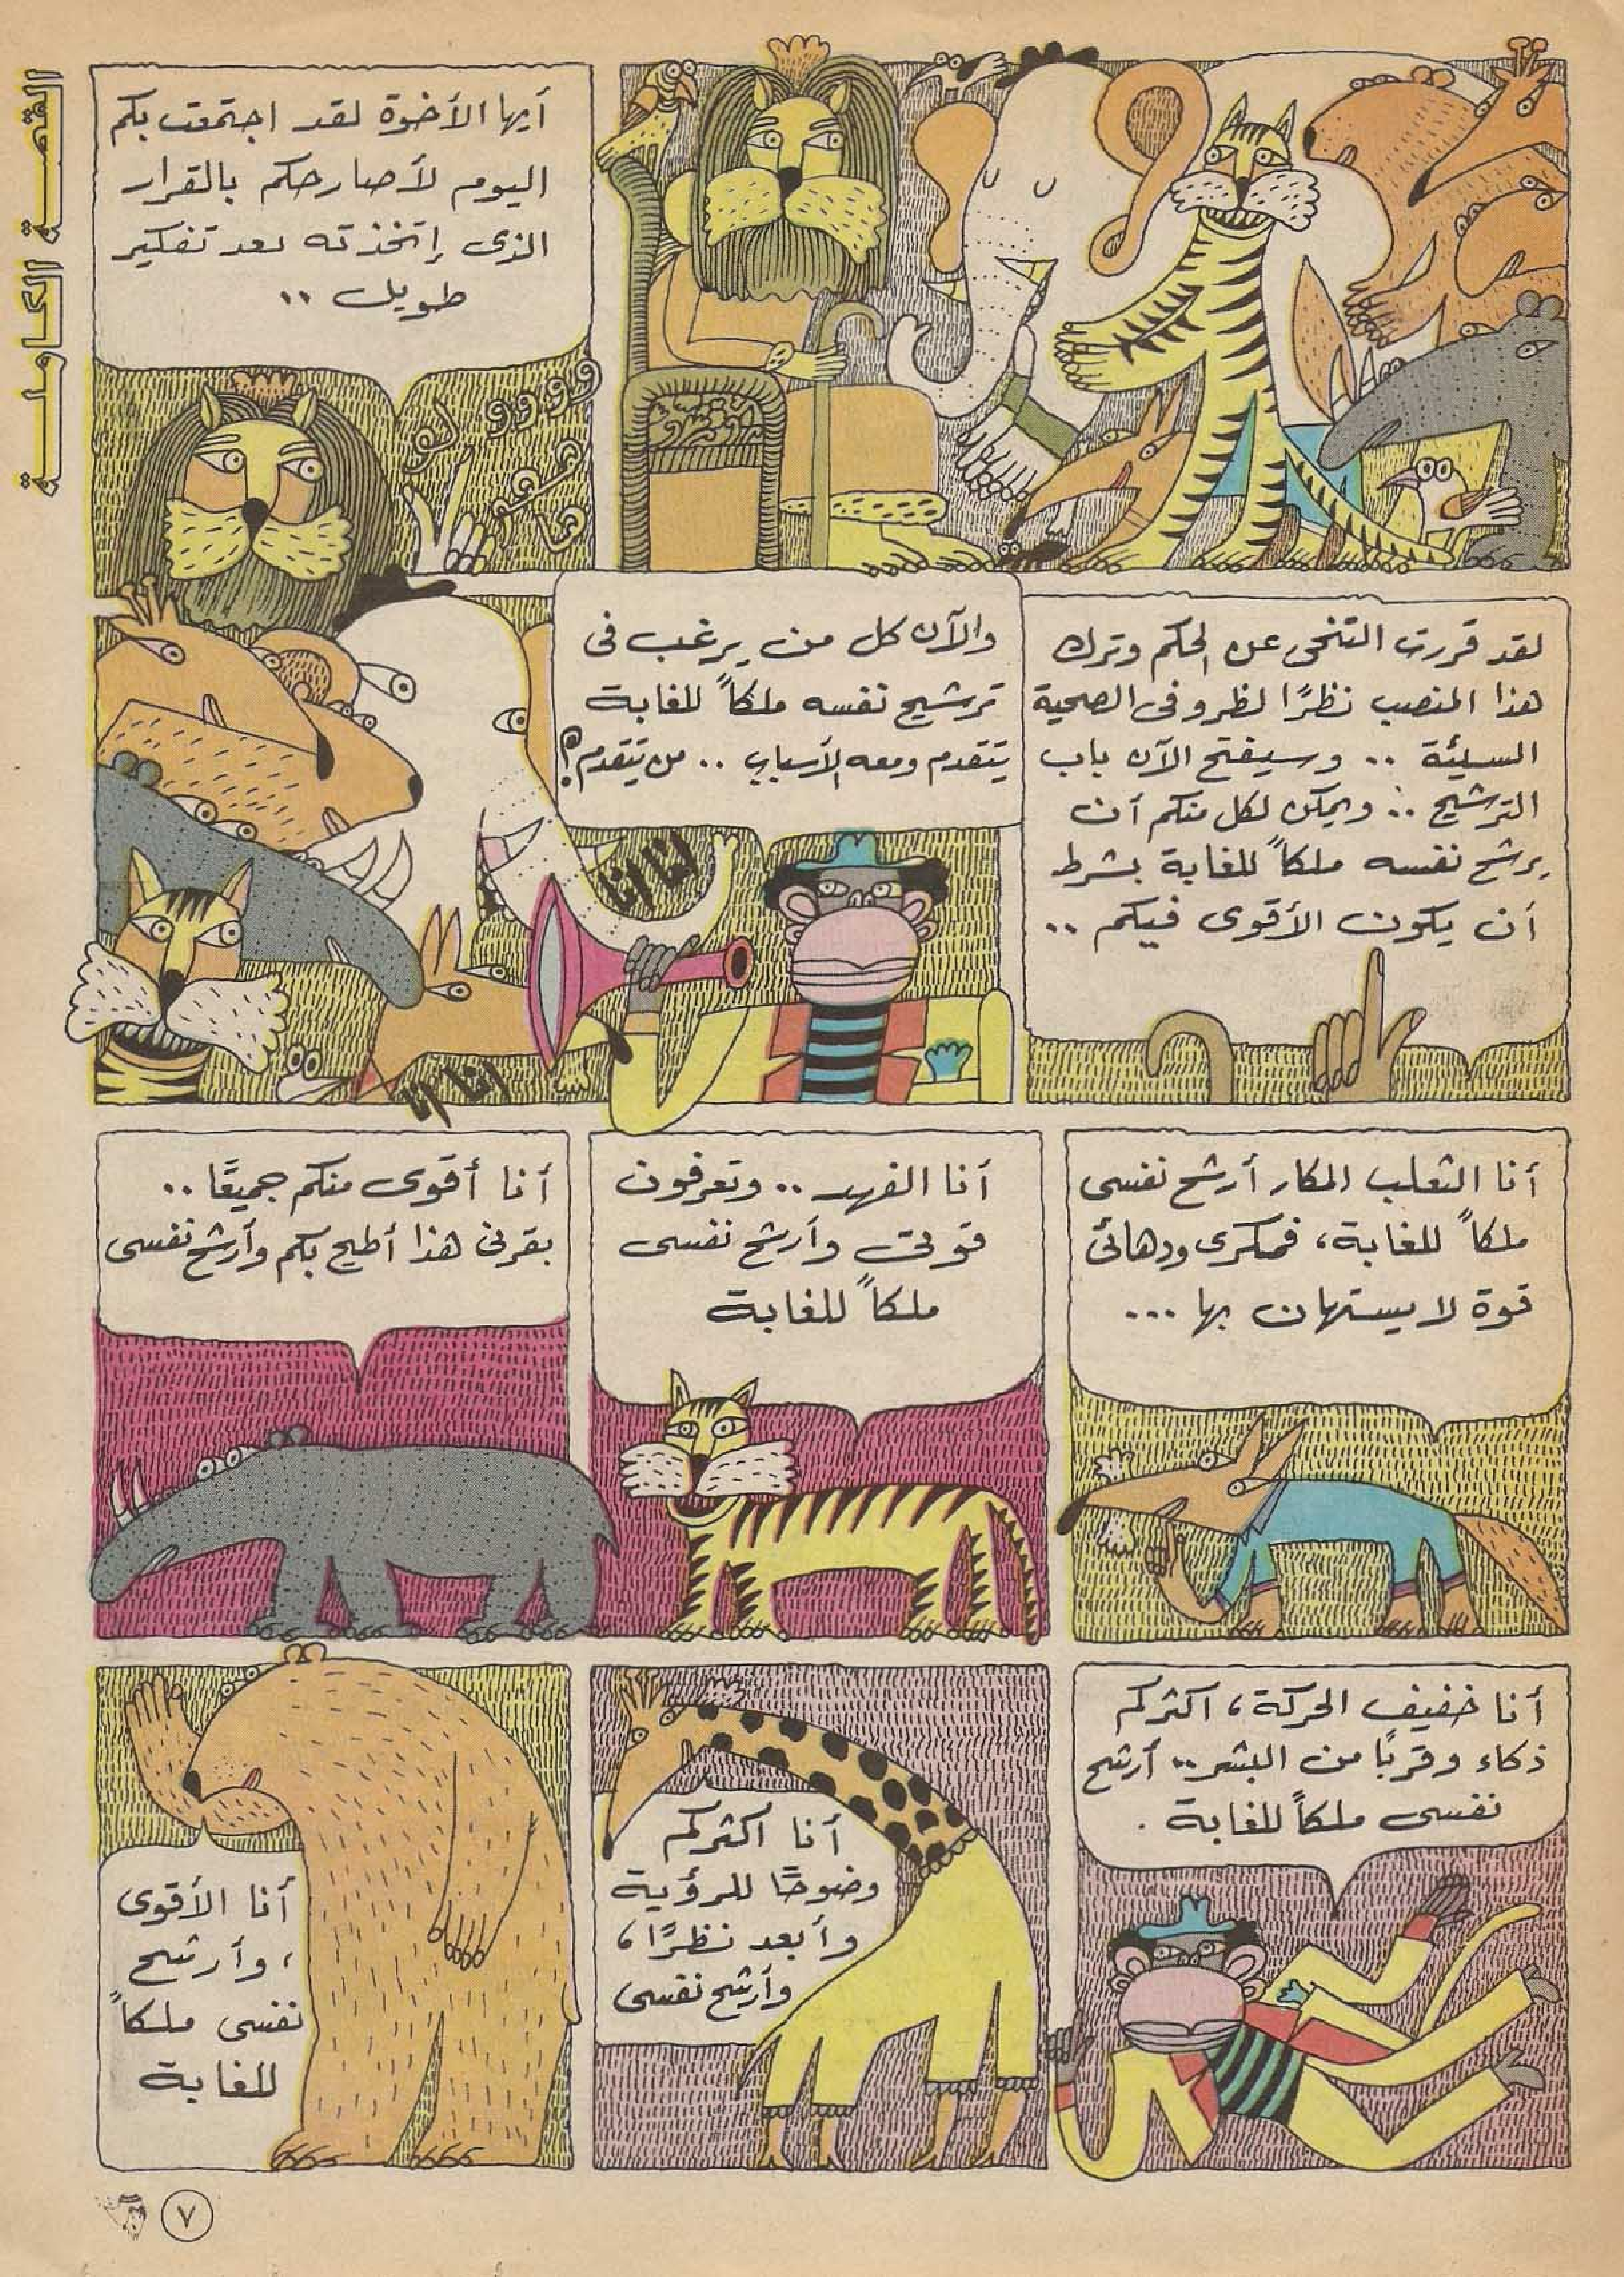 القصة الكاملة
أيها الأخوة لقد اجتمعت بكم
اليوم لأصارحكم بالقرار
الذى إتخذته بعد تفكير
طويل ..
لقد قررت التنحى عن الحكم وترك
هذا المنصب نظرًا لظروفى الصحية
السيئة .. وسيفتح الآن باب
الترشيح .. ويمكن لكل منكم أن
يرشح نفسه ملكاً للغابة بشرط
أن يكون الأقوى فيكم ..
والآن كل من يرغب فى
ترشيح نفسه ملكاً للغابة
يتقدم ومعه الأسباب .. من يتقدم؟
أنا أنا
أنا أنا
أنا الثعلب المكار أرشح نفسى
ملكاً للغابة، فمكرى ودهائى
قوة لا يستهان بها ...
أنا الفهد .. وتعرفون
قوتى وأرشح نفسى
ملكاً للغابة
أنا أقوى منكم جميعًا ..
بقرنى هذا أطيح بكم وأرشح نفسى
أنا خفيف الحركة، اكثركم
ذكاء وقربًا من البشر .. أرشح
نفسى ملكاً للغابة .
أنا اكثركم
وضوحًا للرؤية
وأبعد نظرًا،
وأرشح نفسى
أنا الأقوى
، وأرشح
نفسى ملكاً
للغابة
٧